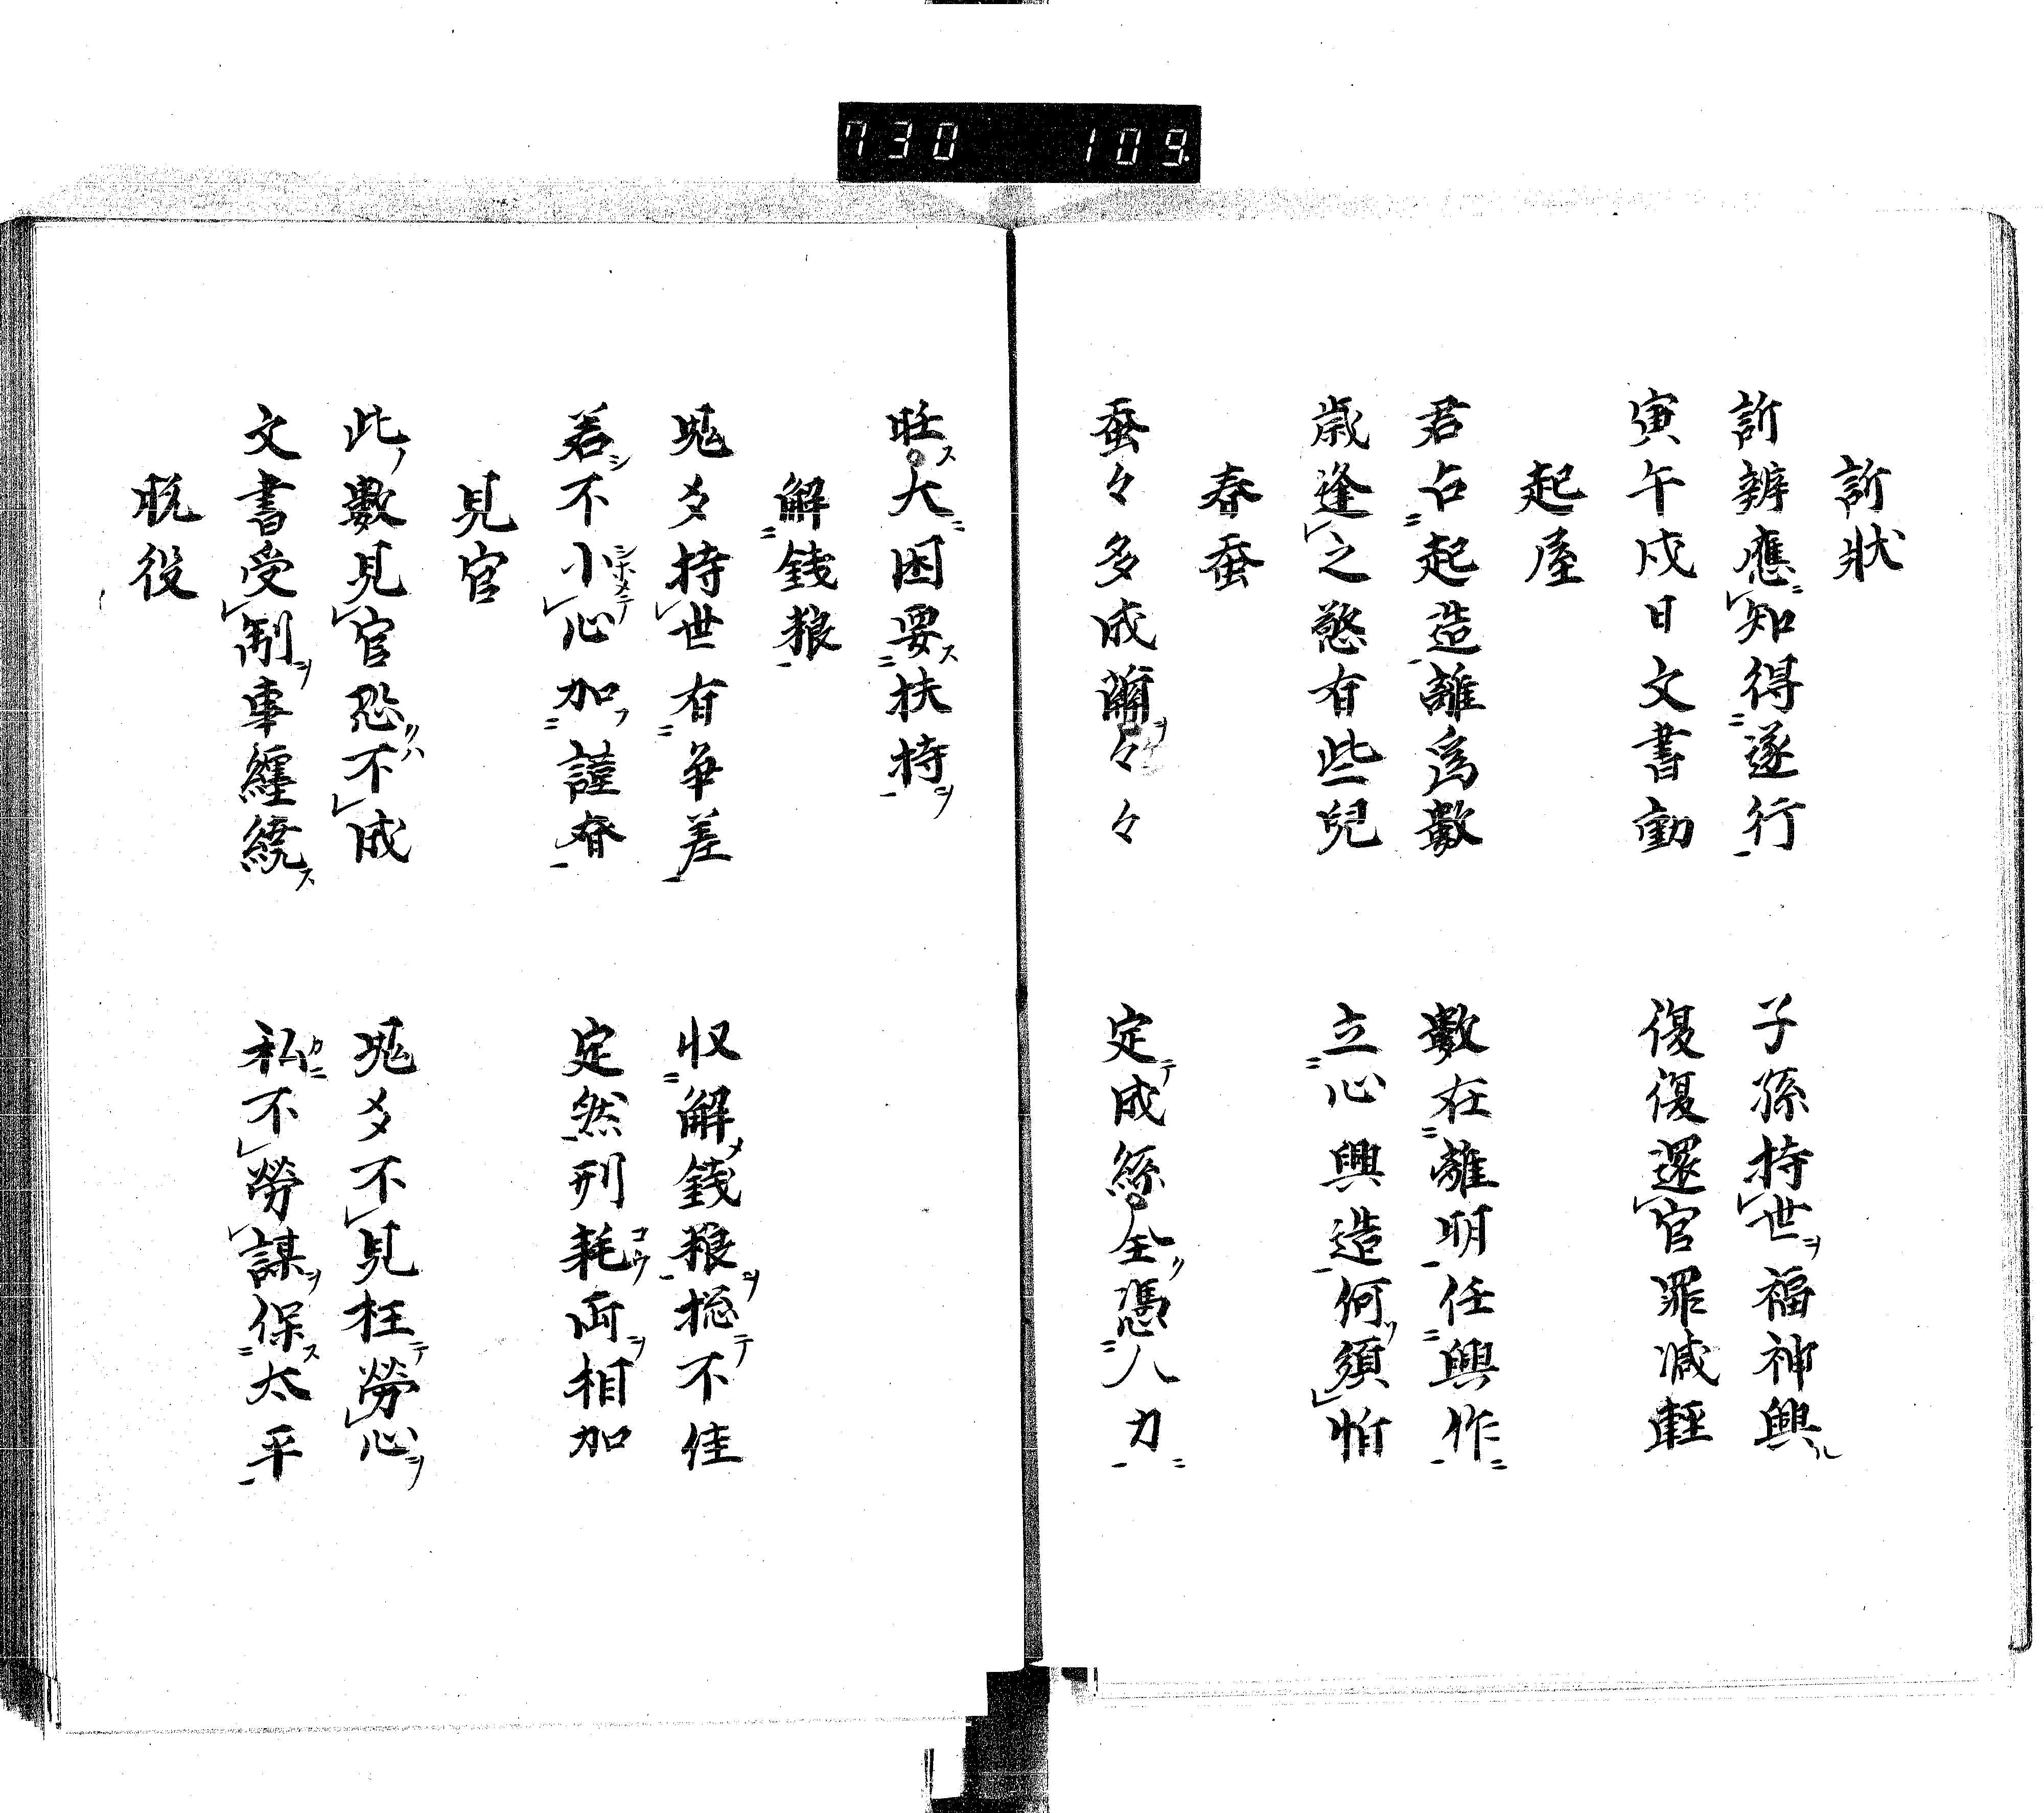 730 109
訴狀
訴辨應知得遂行 子孫持世福神興
寅午戌日文書動 復復還官罪減輕
起屋
君占起造離爲數 數在離明任興作
歳逢之慾有些兒 立心興造何須怕
春蚕
蚕々多成繭々々 定成絲全憑人力
旺大困要扶持
解錢粮
鬼爻持世有争差 収解錢粮捴不佳
若不小心加謹脊 定然刑耗両相加
見官
此數見官恐不成 鬼爻不見枉勞心
文書受制事纏繞 私不勞謀保太平
脱役